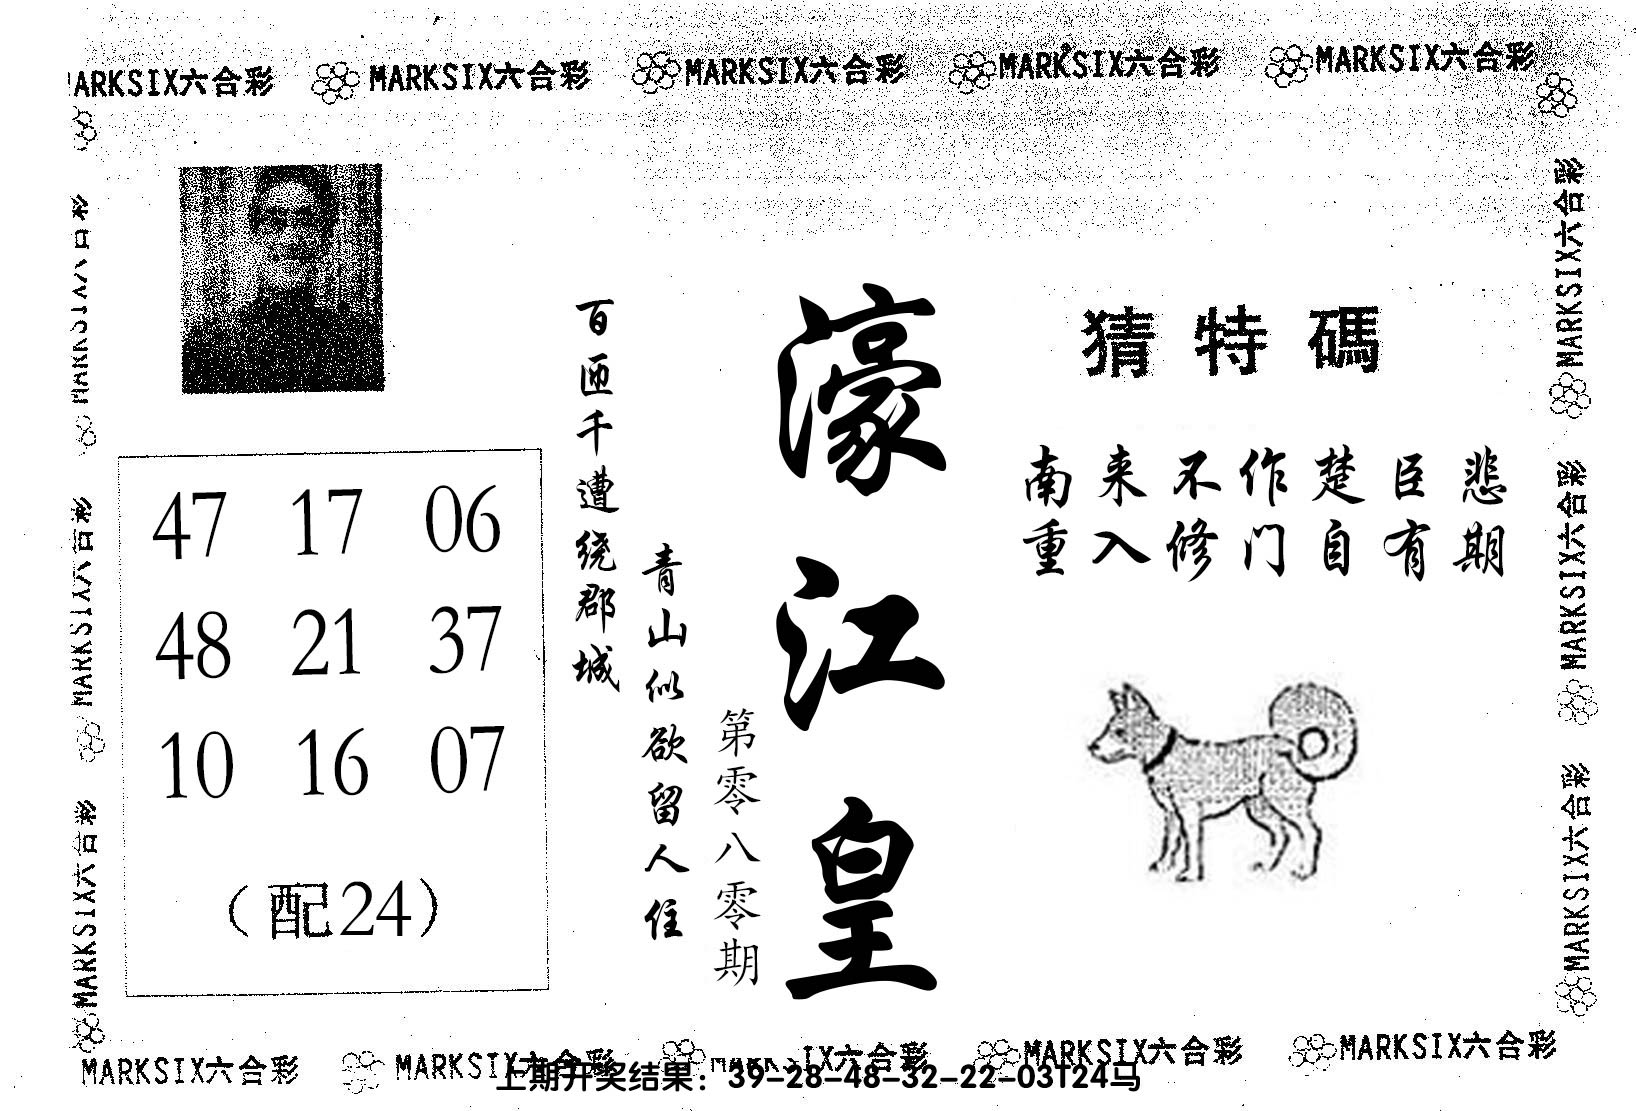 MARKSIX六合彩 MARKSIX六合彩 MARKSIX六合彩 MARKSIX六合彩 MARKSIX六合彩
MARKSIX六合彩
MARKSIX六合彩
MARKSIX六合彩
47 17 06
48 21 37
10 16 07
(配24)
百匝千遭绕郡城
青山似欲留人住
第零八零期
濠江皇
猜特碼
南来不作楚臣悲
重入修门自有期
MARKSIX六合彩
MARKSIX六合彩
MARKSIX六合彩
MARKSIX六合彩 MARKSIX六合彩 MARKSIX六合彩 MARKSIX六合彩 MARKSIX六合彩
上期开奖结果：39-28-48-32-22-03T24马